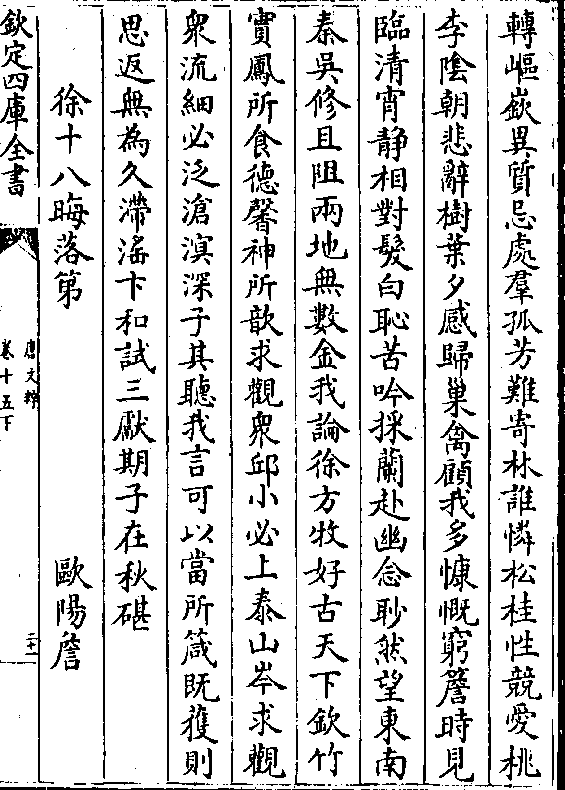 轉嶇嶔異質忌處羣孤芳難寄林誰憐松桂性競愛桃
李陰朝悲辭樹葉夕感歸巢禽顧我多慷慨窮簷時見
臨清宵静相對髮白恥苦吟採蘭赴幽念眇然望東南
秦吳修且阻兩地無數金我論徐方牧好古天下欽竹
實鳳所食德馨神所歆求觀衆邱小必上泰山岑求觀
衆流細必泛滄溟深子其聽我言可以當所箴既獲則
思返無為久滯滛卞和試三獻期子在秋碪
徐十八晦落第 歐陽詹
欽定四庫全書
唐文粹
卷十五下
二十一